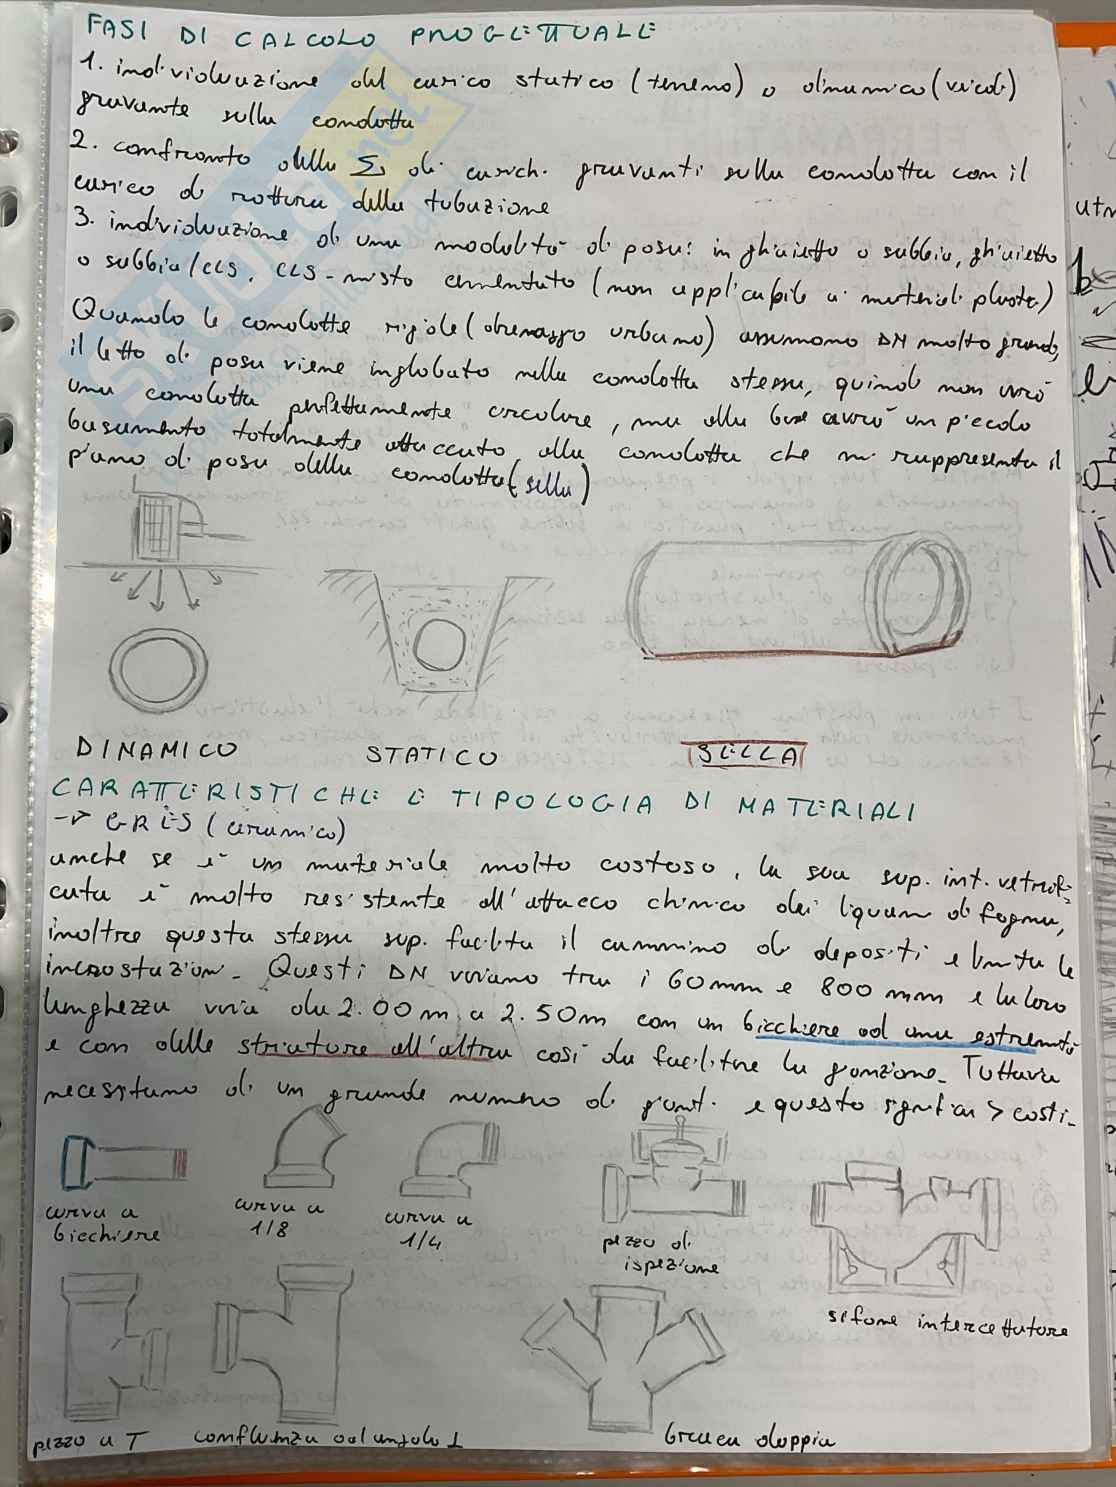 FASI DI CALCOLO PROGETTUALE
1. individuazione del carico statico (terreno) o dinamico (veicoli)
gravante sulla condotta
2. confronto della Σ di carichi gravanti sulla condotta con il
carico di rottura della tubazione
3. individuazione di una modalità di posa: in ghiaietto o sabbia, ghiaietto
o sabbia/CLS, CLS-misto cementato (non applicabile ai materiali plastici)
Quando le condotte rigide (drenaggio urbano) assumono DN molto grandi,
il letto di posa viene inglobato nella condotta stessa, quindi non avrò
una condotta perfettamente circolare, ma alla base avrò un piccolo
basamento totalmente attaccato alla condotta che mi rappresenta il
piano di posa della condotta (sella)
DINAMICO STATICO SELLA
CARATTERISTICHE E TIPOLOGIA DI MATERIALI
→ GRES (ceramico)
anche se è un materiale molto costoso, la sua sup. int. vetrifi-
cata è molto resistente all'attacco chimico dei liquami di fogna,
inoltre questa stessa sup. facilita il cammino di depositi e limita le
incrostazioni. Questi DN variano tra i 60mm e 800mm e la loro
lunghezza varia da 2.00m a 2.50m con un bicchiere ad una estremità
e con delle striature all'altra così da facilitare la giunzione. Tuttavia
necessitano di un grande numero di giunti e questo significa > costi.
curva a
bicchiere
curva a
1/8
curva a
1/4
pezzo di
ispezione
sifone intercettatore
pezzo a T
confluenza ad angolo ⊥
braca doppia
SKUOLA.net
utm